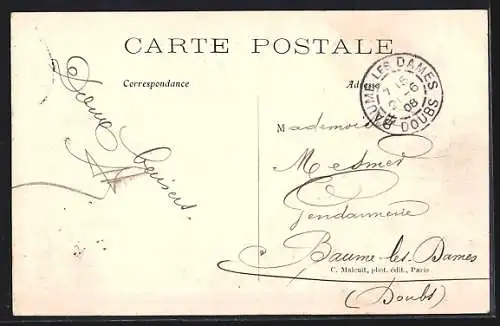 CARTE POSTALE
Correspondance
Adresse
BAUME LES DAMES
7 15
21-6
08
DOUBS
Doux baisers
Mademoiselle
Mesmer
Gendarmerie
à Baume-les-Dames
C. Malcuit, phot. édit., Paris
(Doubs)